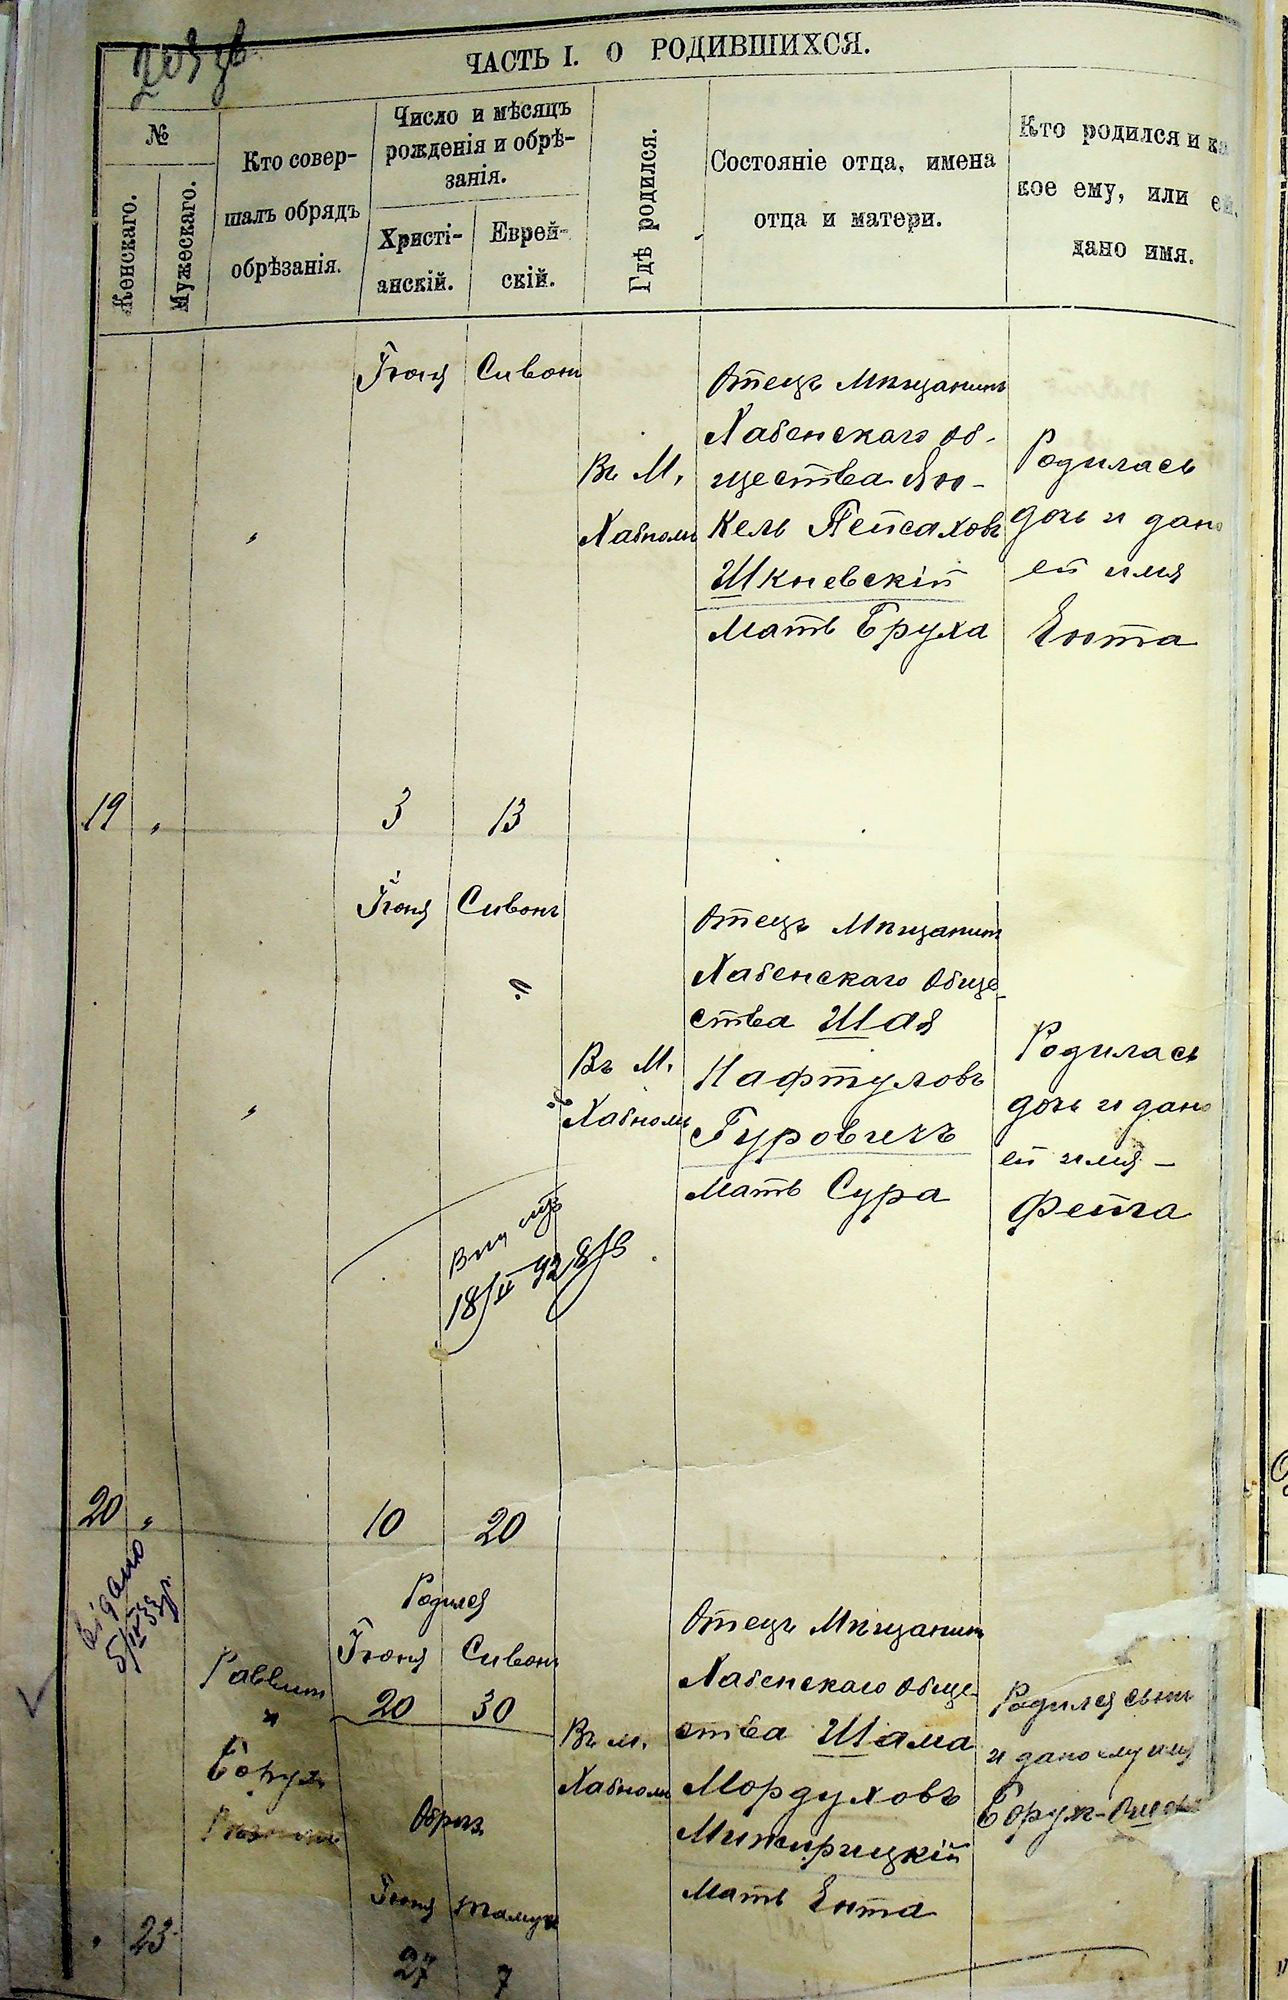 203 зв
ЧАСТЬ I. О РОДИВШИХСЯ.
№
Женскаго.
Мужескаго.
Кто совер-
шалъ обрядъ
обрѣзанія.
Число и мѣсяцъ
рожденія и обрѣ-
занія.
Христі-
анскій.
Еврей-
скій.
Гдѣ родился.
Состояніе отца, имена
отца и матери.
Кто родился и ка
кое ему, или ей,
дано имя.
Іюня
Сивонъ
Въ М.
Хабномъ
Отецъ Мѣщанинъ
Хабенскаго Об-
щества Ян-
кель Пейсаховъ
Шкневскій
Мать Бруха
Родилась
дочь и дано
ей имя
Ента
19
3
13
Іюня
Сивонъ
Въ М.
Хабномъ
Отецъ Мѣщанинъ
Хабенскаго Обще-
ства Шая
Нафтуловъ
Гуровичъ
Мать Сура
Родилась
дочь и дано
ей имя –
Фейга
18/II 92
20
10
20
Видано
5/IV 33р.
Раввинъ
Борухъ
Родился
Іюня
Сивонъ
20
30
Обрѣз.
Іюня
Тамуз
27
7
Въ м.
Хабномъ
Отецъ Мѣщанинъ
Хабенскаго Обще-
ства Шама
Мордуховъ
Мижирицкій
Мать Ента
Родился сынъ
и дано ему имя
Борухъ-
23